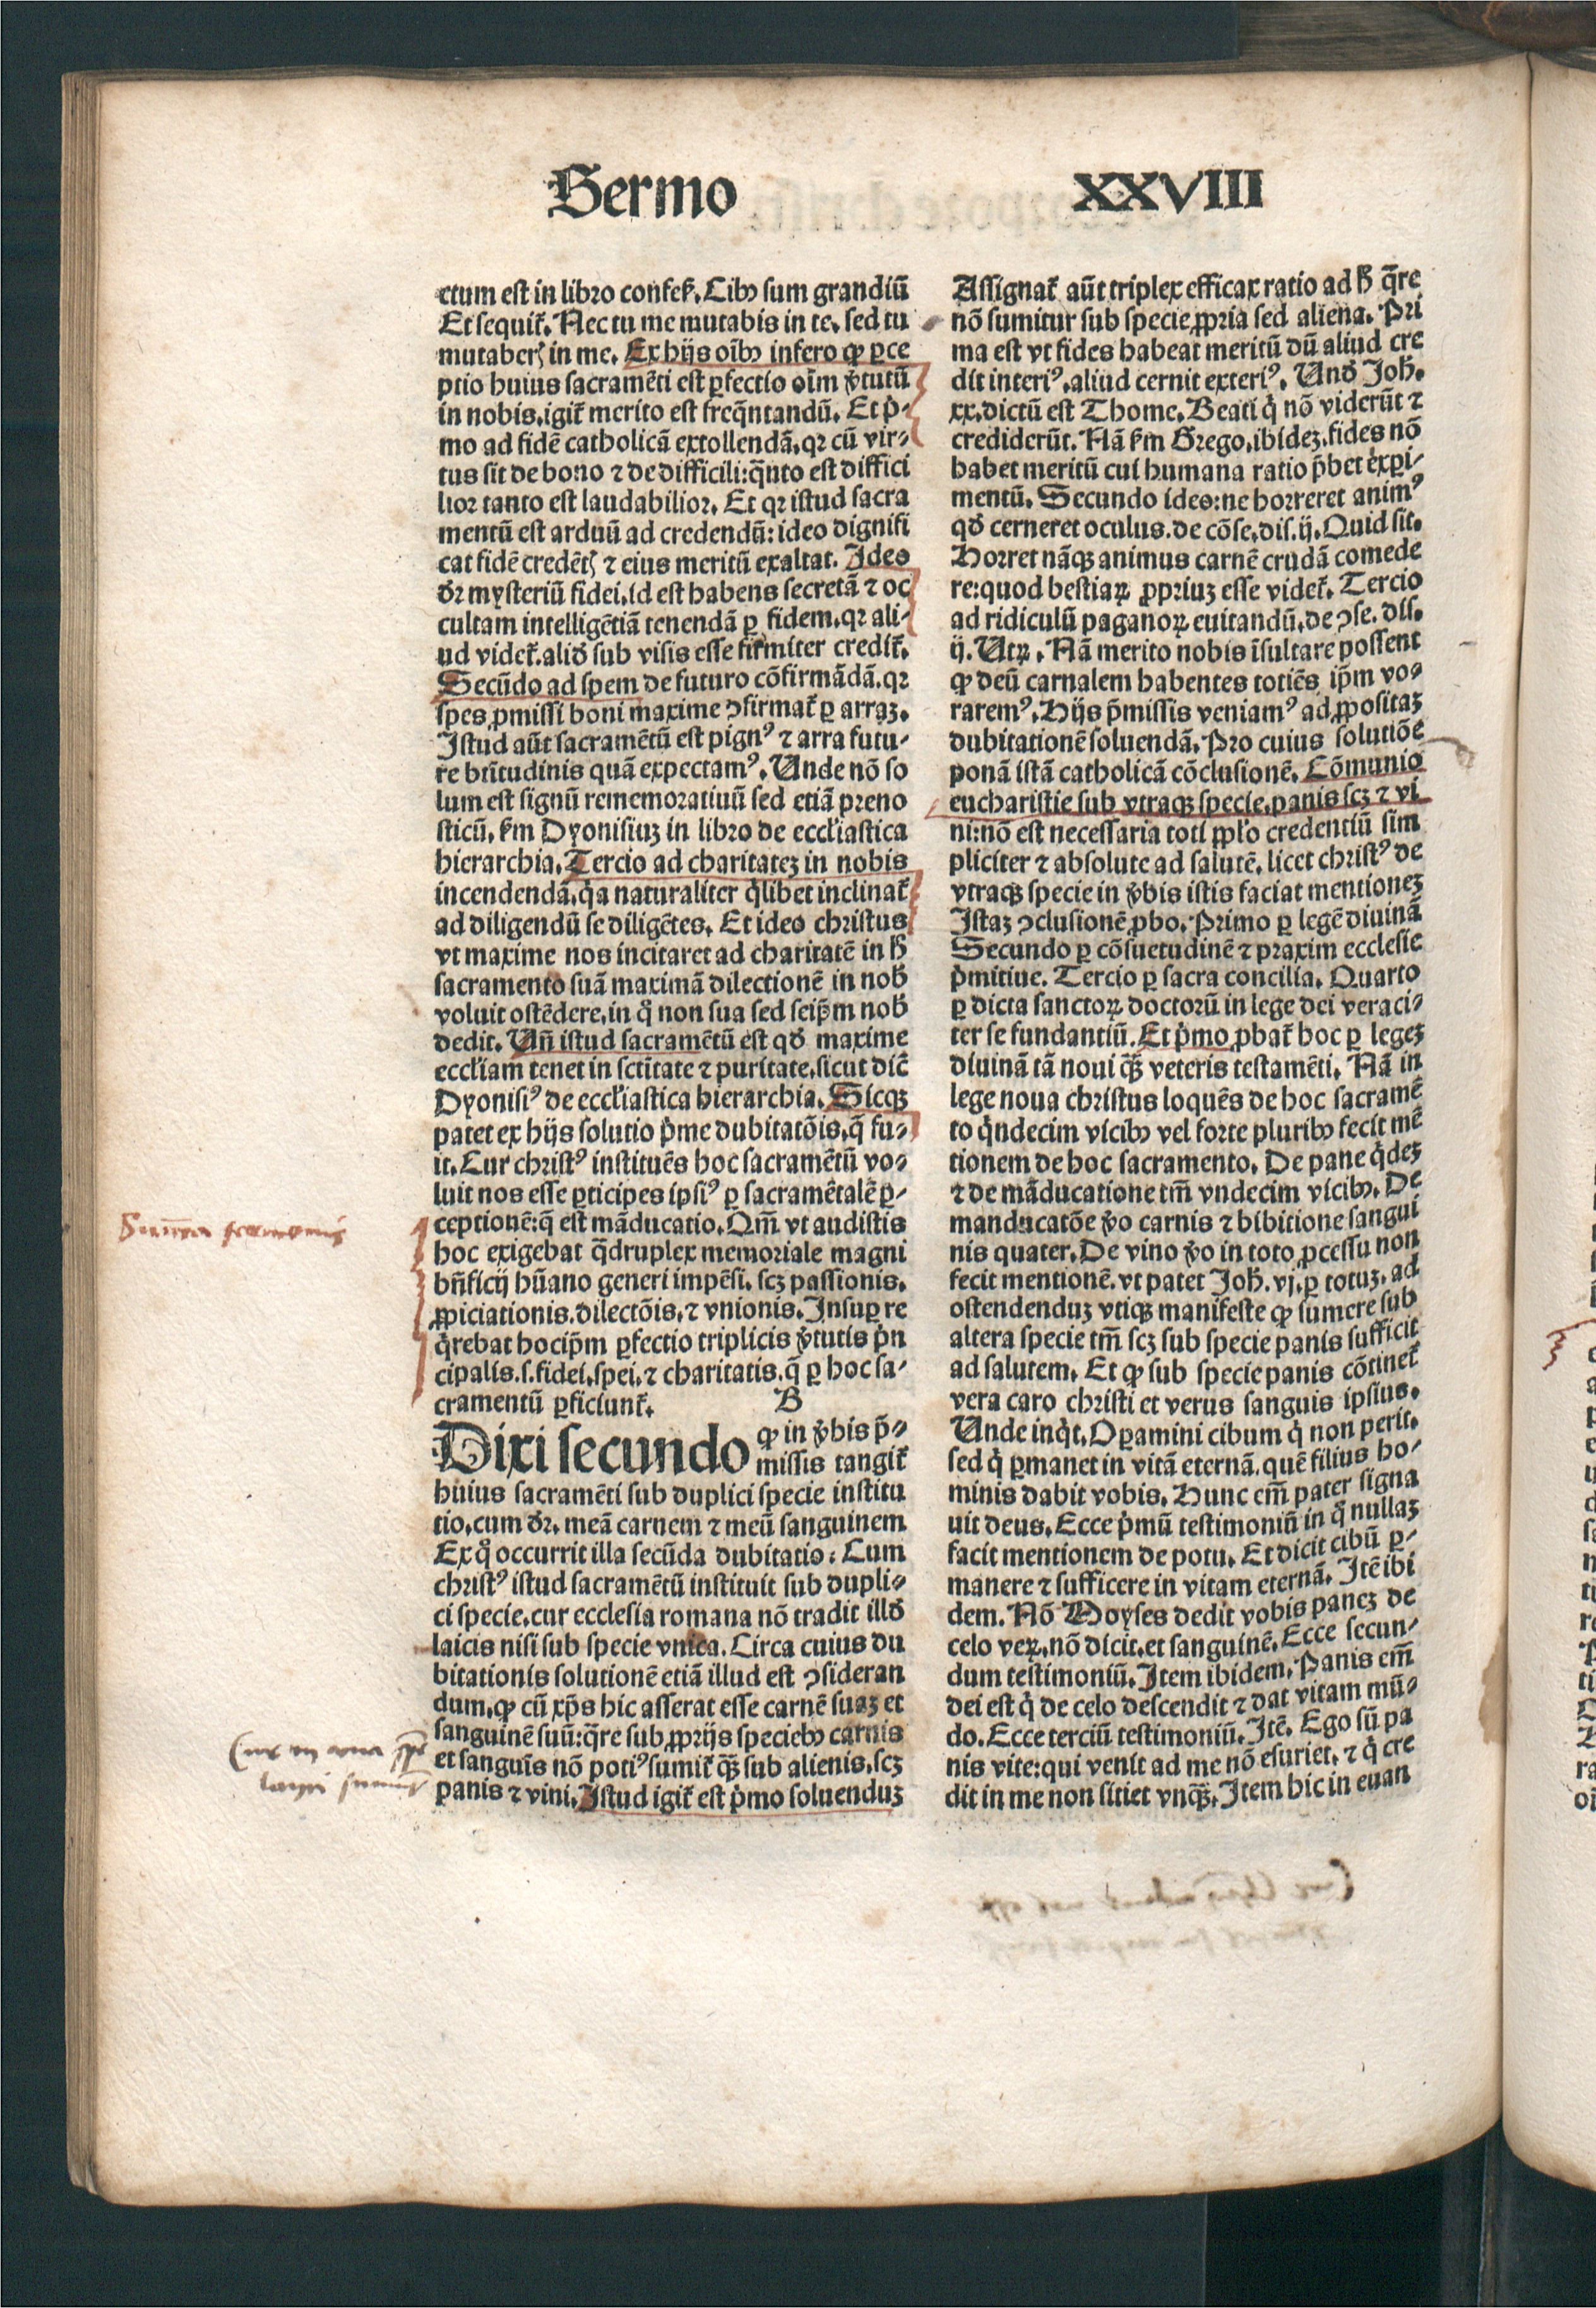 Sermo XXVIII
ctum est in libro confeſ. Cibꝰ ſum grandiū
Et ſequit̃. Nec tu me mutabis in te, ſed tu
mutaberꝭ in me. Ex hijs oībꝰ infero ꝙ ꝑce
ptio huius ſacramēti est ꝑfectio oīm v̓tutū
in nobis, igit̃ merito est freq̄ntandū. Et p̓⸗
mo ad fidē catholicā extollendā, qꝛ cū vir⸗
tus ſit de bono ⁊ de difficili: q̄nto est diffici
lior tanto est laudabilior. Et qꝛ istud ſacra
mentū est arduū ad credendū: ideo dignifi
cat fidē credētꝭ ⁊ eius meritū exaltat. Ideo
dꝛ mysteriū fidei, id est habens ſecretā ⁊ oc
cultam intelligētiā tenendā ꝑ fidem, qꝛ ali⸗
ud videt̃. aliđ ſub viſis eſſe firmiter credit̃.
Secūdo ad ſpem de futuro cōfirmādā. qꝛ
ſpes ꝓmiſſi boni maxime ꝯfirmat̃ ꝑ arraꝫ.
Istud aūt ſacramētū est pignꝰ ⁊ arra futu⸗
re btītudinis quā expectamꝰ. Unde nō ſo
lum est ſignū rememoratiuū ſed etiā preno
sticū, ẜm Dyoniſiuꝫ in libro de eccłiastica
hierarchia. Tercio ad charitateꝫ in nobis
incendendā, q̓a naturaliter q̓libet inclinat̃
ad diligendū ſe diligētes. Et ideo christus
vt maxime nos incitaret ad charitatē in ħ
ſacramento ſuā maximā dilectionē in nob̄
voluit ostēdere, in q̊ non ſua ſed ſeip̄m nob̄
dedit. Un̄ istud ſacramētū est qđ maxime
eccłiam tenet in ſctītate ⁊ puritate, ſicut dic̄
Dyoniſiꝰ de eccłiastica hierarchia. Sicqꝫ
patet ex hijs ſolutio p̓me dubitatōis, q̄ fu⸗
it. Cur christꝰ instituēs hoc ſacramētū vo⸗
luit nos eſſe ꝑticipes ipſiꝰ ꝑ ſacramētalē ꝑ⸗
ceptionē: q̄ est māducatio. Qm̄ vt audistis
hoc exigebat q̄druplex memoriale magni
bn̄ficij hūano generi impēſi. ſcꝫ paſſionis,
ꝓpiciationis, dilectōis, ⁊ vnionis. Inſuꝑ re
q̓rebat hocip̄m ꝑfectio triplicis v̓tutis p̓n
cipalis. ſ. fidei, ſpei, ⁊ charitatis. q̄ ꝑ hoc ſa⸗
cramentū ꝑficiunt̃. B
Dixi ſecundo ꝙ in v̓bis p̄⸗
miſſis tangit̃
huius ſacramēti ſub duplici ſpecie institu
tio, cum dꝛ. meā carnem ⁊ meū ſanguinem
Ex q̊ occurrit illa ſecūda dubitatio: Cum
christꝰ istud ſacramētū instituit ſub dupli⸗
ci ſpecie, cur eccleſia romana nō tradit illđ
laicis niſi ſub ſpecie vnica. Circa cuius du
bitationis ſolutionē etiā illud est ꝯſideran
dum, ꝙ cū xp̄s hic aſſerat eſſe carnē ſuaꝫ et
ſanguinē ſuū: q̄re ſub ꝓprijs ſpeciebꝰ carnis
et ſanguīs nō potiꝰ ſumit̃ q̄ꝫ ſub alienis, ſcꝫ
panis ⁊ vini. Istud igit̃ est p̓mo ſoluenduꝫ
Aſſignat̃ aūt triplex efficax ratio ad ħ q̄re
nō ſumitur ſub ſpecie ꝓpria ſed aliena. Pri
ma est vt fides habeat meritū dū aliud cre
dit interiꝰ, aliud cernit exteriꝰ. Unđ Joh̄.
xx. dictū est Thome. Beati q̓ nō viderūt ⁊
crediderūt. Nā ẜm Grego. ibideꝫ. fides nō
habet meritū cui humana ratio p̄bet exꝑi⸗
mentū. Secundo ideo: ne horreret animꝰ
qđ cerneret oculus. de cōſe. diſ. ij. Quid ſit.
Horret nāqꝫ animus carnē crudā comede
re: quod bestiaꝝ ꝓpriuꝫ eſſe videt̃. Tercio
ad ridiculū paganoꝝ euitandū, de ꝯſe. diſ.
ij. Utꝝ. Nā merito nobis īſultare poſſent
ꝙ deū carnalem habentes totiēs ip̄m vo⸗
raremꝰ. Hijs p̄miſſis veniamꝰ ad ꝓpoſitaꝫ
dubitationē ſoluendā. Pro cuius ſolutiōe
ponā istā catholicā cōcluſionē. Cōmunio
eucharistie ſub vtraqꝫ ſpecie, panis ſcꝫ ⁊ vi
ni: nō est neceſſaria toti ꝓpl'o credentiū ſim
pliciter ⁊ abſolute ad ſalutē, licet christꝰ de
vtraqꝫ ſpecie in v̓bis istis faciat mentioneꝫ
Istaꝫ ꝯcluſionē ꝓbo. Primo ꝑ legē diuinā
Secundo ꝑ cōſuetudinē ⁊ praxim eccleſie
p̓mitiue. Tercio ꝑ ſacra concilia. Quarto
ꝑ dicta ſanctoꝝ doctorū in lege dei veraci⸗
ter ſe fundantiū. Et p̓mo ꝓbat̃ hoc ꝑ legeꝫ
diuinā tā noui q̄ꝫ veteris testamēti. Nā in
lege noua christus loquēs de hoc ſacramē
to q̓ndecim vicibꝰ vel forte pluribꝰ fecit mē
tionem de hoc ſacramento. De pane q̓deꝫ
⁊ de māducatione tm̄ vndecim vicibꝰ. De
manducatōe v̓o carnis ⁊ bibitione ſangui
nis quater. De vino v̓o in toto ꝓceſſu non
fecit mentionē. vt patet Joh̄. vj. ꝑ totuꝫ. ad
ostendenduꝫ vtiqꝫ manifeste ꝙ ſumere ſub
altera ſpecie tm̄ ſcꝫ ſub ſpecie panis ſufficit
ad ſalutem. Et ꝙ ſub ſpecie panis cōtinet̃
vera caro christi et verus ſanguis ipſius.
Unde inq̓t. Oꝑamini cibum q̓ non perit.
ſed q̓ ꝑmanet in vitā eternā. quē filius ho⸗
minis dabit vobis. Hunc em̄ pater ſigna
uit deus. Ecce p̓mū testimoniū in q̊ nullaꝫ
facit mentionem de potu. Et dicit cibū ꝑ⸗
manere ⁊ ſufficere in vitam eternā. Itē ibi
dem. Nō Moyſes dedit vobis paneꝫ de
celo veꝝ, nō dicit, et ſanguinē. Ecce ſecun⸗
dum testimoniū. Item ibidem. Panis em̄
dei est q̓ de celo deſcendit ⁊ dat vitam mū⸗
do. Ecce terciū testimoniū. Itē. Ego ſū pa
nis vite: qui venit ad me nō eſuriet. ⁊ q̓ cre
dit in me non ſitiet vnq̄ꝫ. Item hic in euan
Sum̄a ſermonis
Cur in una ſpē
layci ſumūt